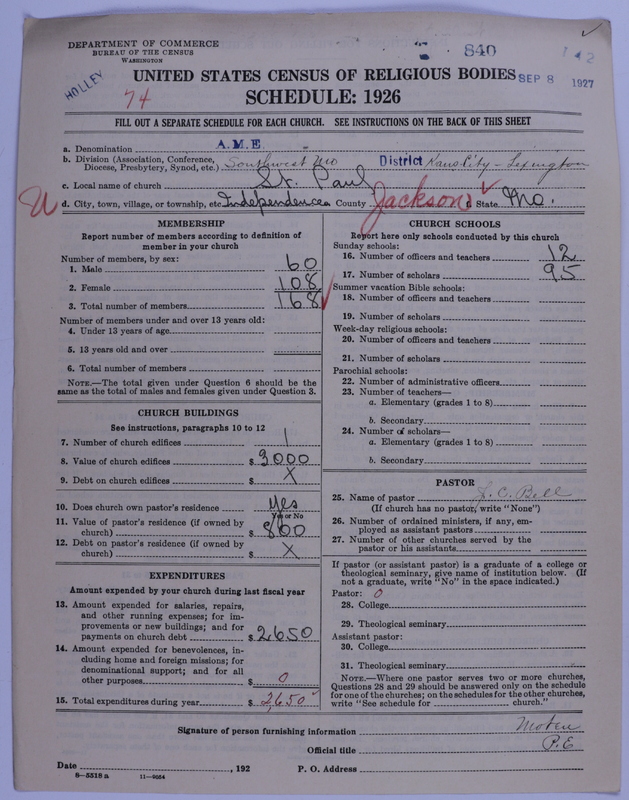 DEPARTMENT OF COMMERCE
BUREAU OF THE CENSUS
WASHINGTON
840
142
HOLLEY
74
UNITED STATES CENSUS OF RELIGIOUS BODIES
SEP 8 1927
SCHEDULE: 1926
FILL OUT A SEPARATE SCHEDULE FOR EACH CHURCH. SEE INSTRUCTIONS ON THE BACK OF THIS SHEET
a. Denomination A. M. E.
b. Division (Association, Conference, Diocese, Presbytery, Synod, etc.) Southwest Mo District Kans City - Lexington
c. Local name of church St. Paul
d. City, town, village, or township, etc. Independence County Jackson State Mo.
MEMBERSHIP
Report number of members according to definition of
member in your church
Number of members, by sex:
1. Male 60
2. Female 108
3. Total number of members 168
Number of members under and over 13 years old:
4. Under 13 years of age
5. 13 years old and over
6. Total number of members
NOTE.—The total given under Question 6 should be the
same as the total of males and females given under Question 3.
CHURCH BUILDINGS
See instructions, paragraphs 10 to 12
7. Number of church edifices 1
8. Value of church edifices $ 3000
9. Debt on church edifices $ X
10. Does church own pastor's residence Yes
Yes or No
11. Value of pastor's residence (if owned by
church) $ 800
12. Debt on pastor's residence (if owned by
church) $ X
EXPENDITURES
Amount expended by your church during last fiscal year
13. Amount expended for salaries, repairs,
and other running expenses; for im-
provements or new buildings; and for
payments on church debt $ 2650
14. Amount expended for benevolences, in-
cluding home and foreign missions; for
denominational support; and for all
other purposes $ 0
15. Total expenditures during year $ 2,650
CHURCH SCHOOLS
Report here only schools conducted by this church
Sunday schools:
16. Number of officers and teachers 12
17. Number of scholars 95
Summer vacation Bible schools:
18. Number of officers and teachers
19. Number of scholars
Week-day religious schools:
20. Number of officers and teachers
21. Number of scholars
Parochial schools:
22. Number of administrative officers
23. Number of teachers—
a. Elementary (grades 1 to 8)
b. Secondary
24. Number of scholars—
a. Elementary (grades 1 to 8)
b. Secondary
PASTOR
25. Name of pastor J. C. Bell
(If church has no pastor, write "None")
26. Number of ordained ministers, if any, em-
ployed as assistant pastors
27. Number of other churches served by the
pastor or his assistants
If pastor (or assistant pastor) is a graduate of a college or
theological seminary, give name of institution below. (If
not a graduate, write "No" in the space indicated.)
Pastor: 0
28. College
29. Theological seminary
Assistant pastor:
30. College
31. Theological seminary
NOTE.—Where one pastor serves two or more churches,
Questions 28 and 29 should be answered only on the schedule
for one of the churches; on the schedules for the other churches,
write "See schedule for church."
Signature of person furnishing information
Official title P. E
Date , 192 P. O. Address
8—5518 a 11—9054